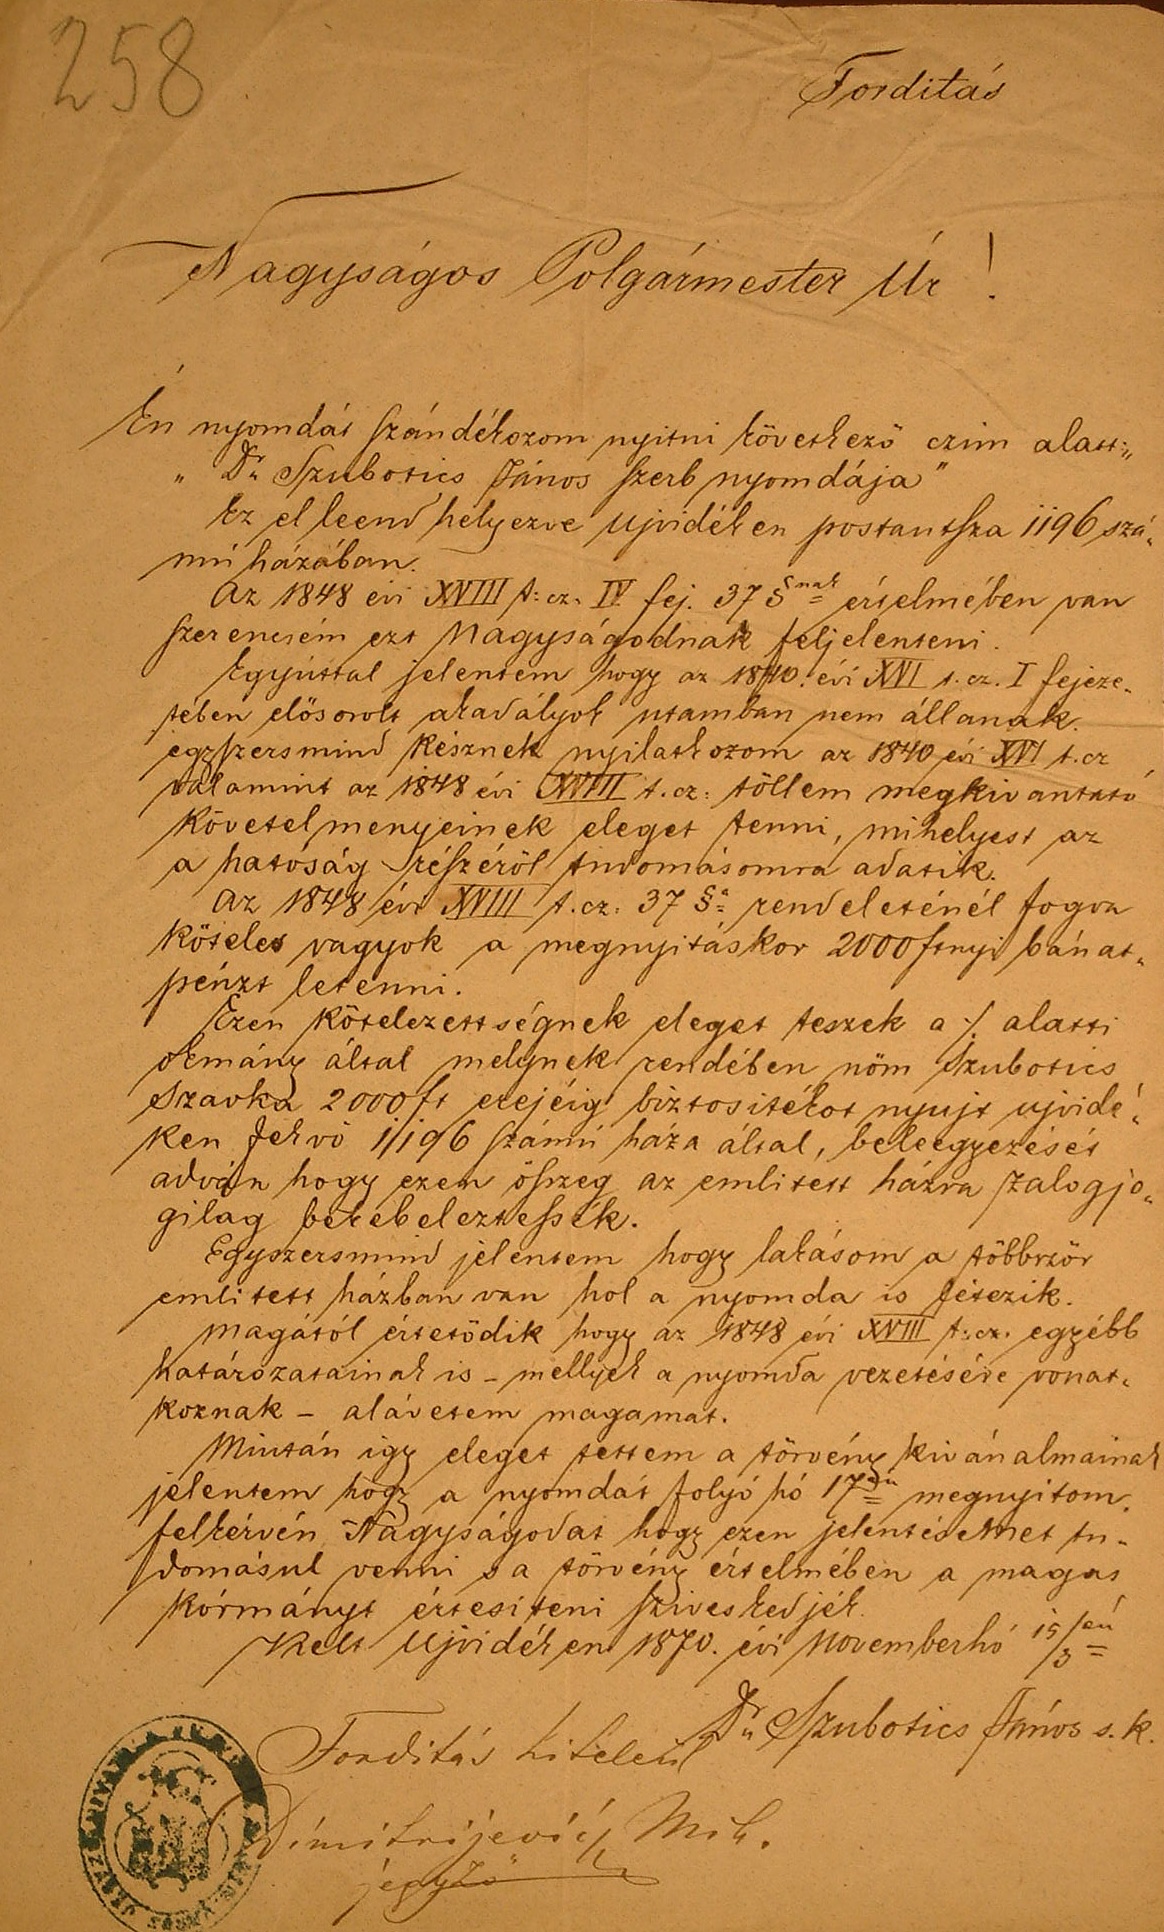 258
Forditás
Nagyságos Polgármester Úr!
Én nyomdát szándékozom nyitni következö czim alatt:"
" Dr. Szubotics János szerb nyomdája"
Ez el leend helyezve Ujvidéken postautsza 1196 szá-
mú házában.
Az 1848 évi XVIII t:cz. IV fej. 37 §nak értelmében van
szerencsém ezt Nagyságodnak feljelenteni.
Egyúttal jelentem hogy az 1840. évi XVI t.cz. I fejeze-
tében elösorolt akadályok utamban nem állanak.
egyszersmind késznek nyilatkozom az 1840 évi XVI t.cz
valamint az 1848 évi XVIII t.cz: töllem megkivántató
követelmenyeinek eleget tenni, mihelyest az
a hatoság részéröl tudomásomra adatik.
Az 1848 évi XVIII t.cz: 37 §a rendeleténél fogva
köteles vagyok a megnyitáskor 2000 ftnyi bánat-
pénzt letenni.
Ezen kötelezettségnek eleget teszek a ·/. alatti
okmány által melynek rendében nöm Szubotics
Szavka 2000 ft erejéig biztositékot nyujt ujvidé-
ken fekvö 1196 számú háza által, beleegyezését
adván hogy ezen összeg az emlitett házra zalogjo-
gilag bekebeleztessék.
Egyszersmind jelentem hogy lakásom a többször
emlitett házban van hol a nyomda is létezik.
Magától értetödik hogy az 1848 évi XVIII t:cz. egyébb
határozatainak is – mellyek a nyomda vezetésére vonat-
koznak – alávetem magamat.
Miután igy eleget tettem a törvény kivánalmainak
jelentem hogy a nyomdát folyó hó 17én megnyitom.
felkérvén Nagyságodat hogy ezen jelentésemet tu-
domásul venni s a törvény értelmében a magas
kórmányt értesiteni sziveskedjék.
Kelt Ujvidéken 1870. évi Novemberhó 15/3én
Dr. Szubotics János s.k.
Forditás hiteleül
Dimitrijevics Mih.
jegyzö